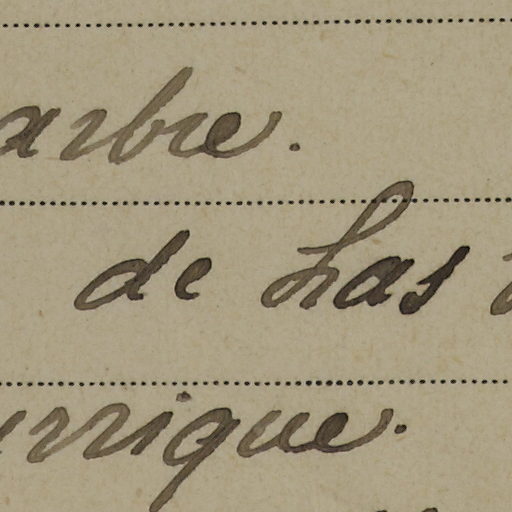 arbre.
de Las
urrique.